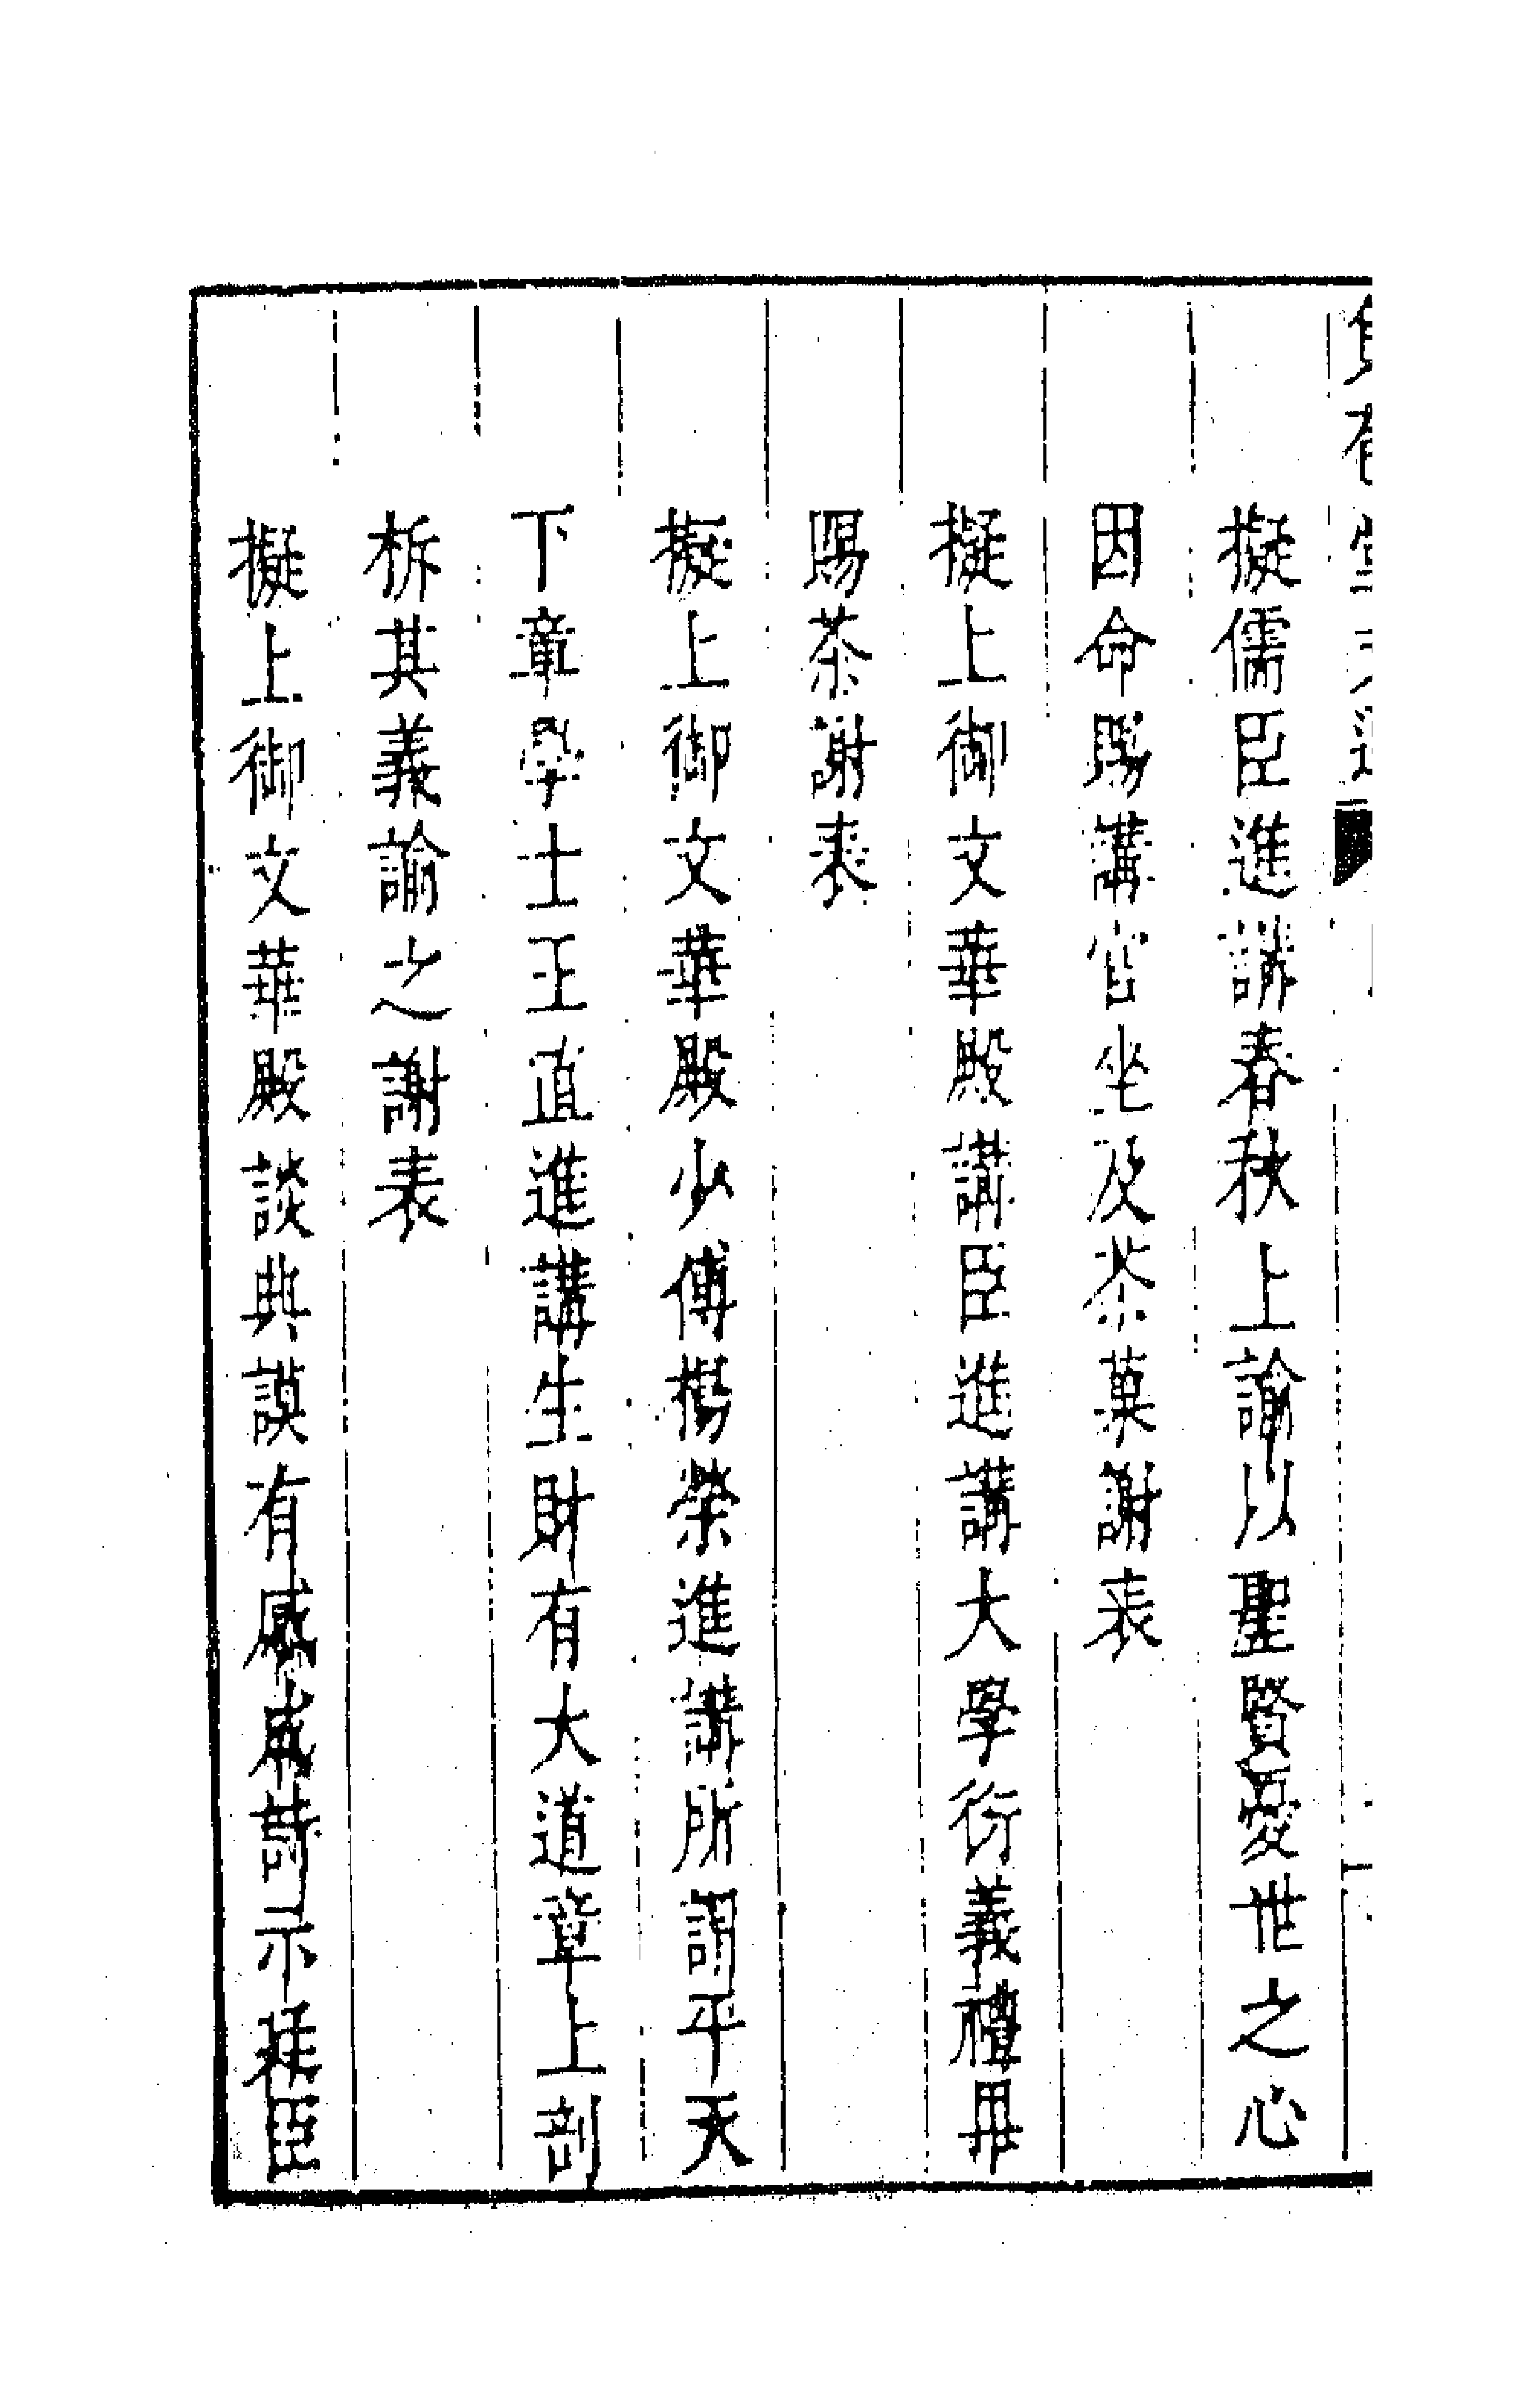 擬儒臣進講春秋上諭以聖賢憂世之心
因命賜講官坐及茶菓謝表
擬上御文華殿講臣進講大學衍義禮畢
賜茶謝表
擬上御文華殿少傅楊榮進講所謂平天
下章學士王直進講生財有大道章上剖
柝其義諭之謝表
擬上御文華殿談典謨有感成詩示群臣